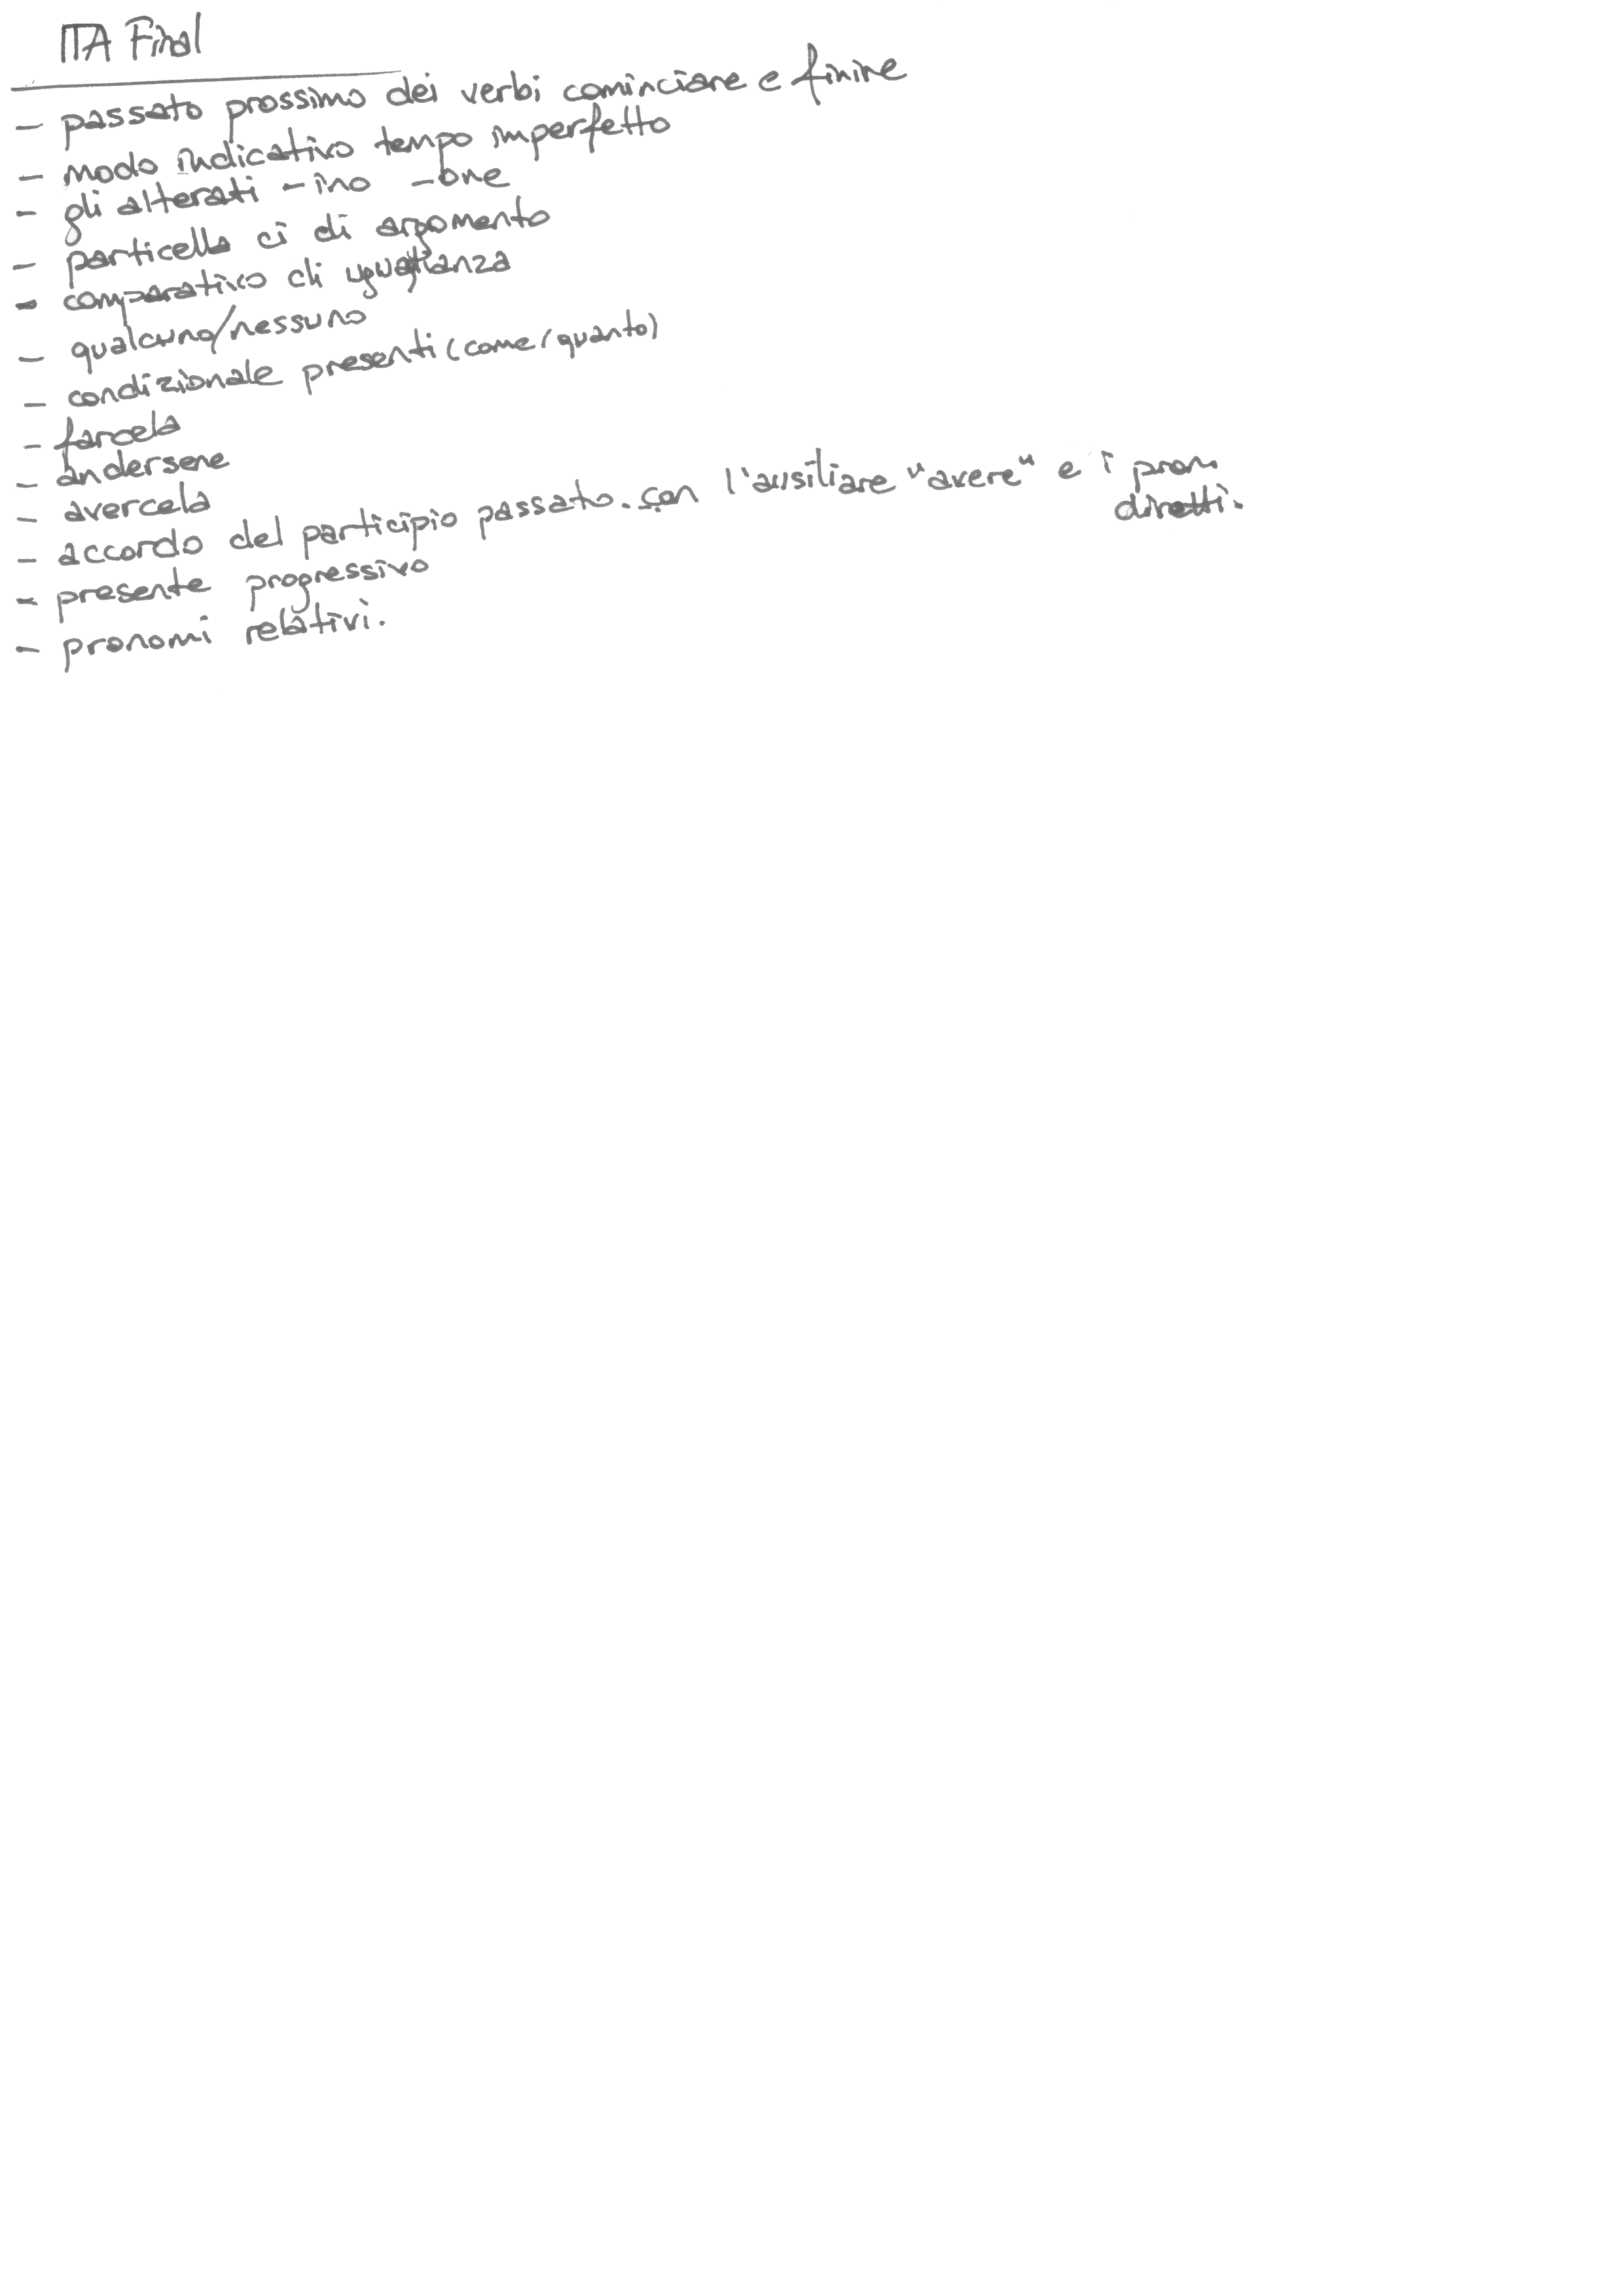 ITA Final
- passato prossimo dei verbi cominciare e finire
- modo indicativo tempo imperfetto
- gli alterati -ino -one
- particella ci di argomento
- comparativo di uguaglianza
- qualcuno/nessuno
- condizionale presenti (come/quanto)
- farcela
- andersene
- avercela
- accordo del participio passato. con l'ausiliare "avere" e i pron.
diretti.
- presente progressivo
- pronomi relativi.